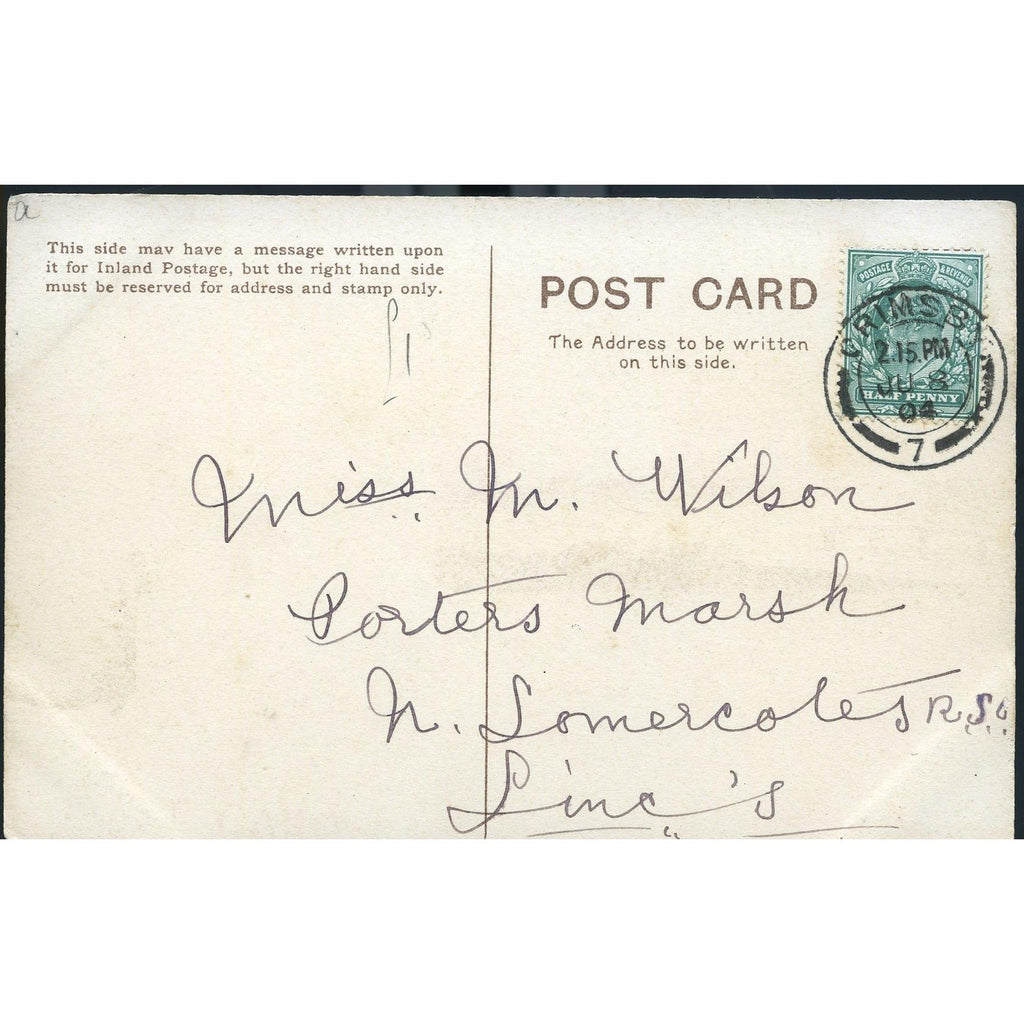 a
This side may have a message written upon
it for Inland Postage, but the right hand side
must be reserved for address and stamp only.
£1
POST CARD
The Address to be written
on this side.
POSTAGE & REVENUE
HALF PENNY
GRIMSBY
2.15.PM
JU 8
04
7
Miss M. Wilson
Porters Marsh
N. Somercotes R.S.O
Linc's